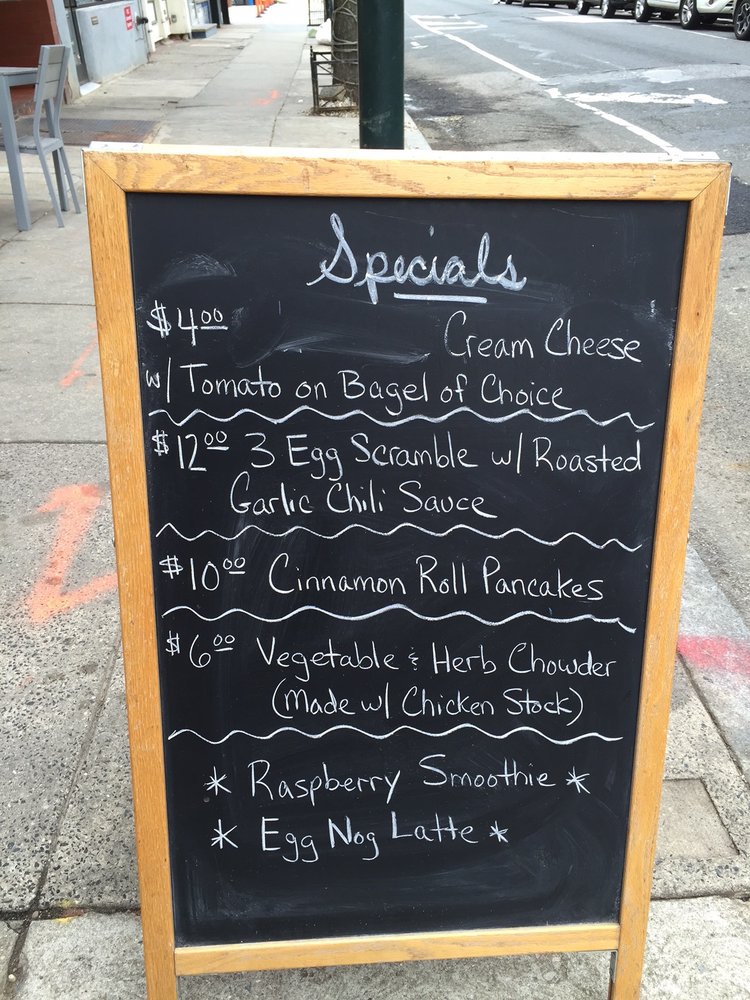 Specials
$4.00 Cream Cheese
w/ Tomato on Bagel of Choice
$12.00 3 Egg Scramble w/ Roasted
Garlic Chili Sauce
$10.00 Cinnamon Roll Pancakes
$6.00 Vegetable & Herb Chowder
(Made w/ Chicken Stock)
* Raspberry Smoothie *
* Egg Nog Latte *